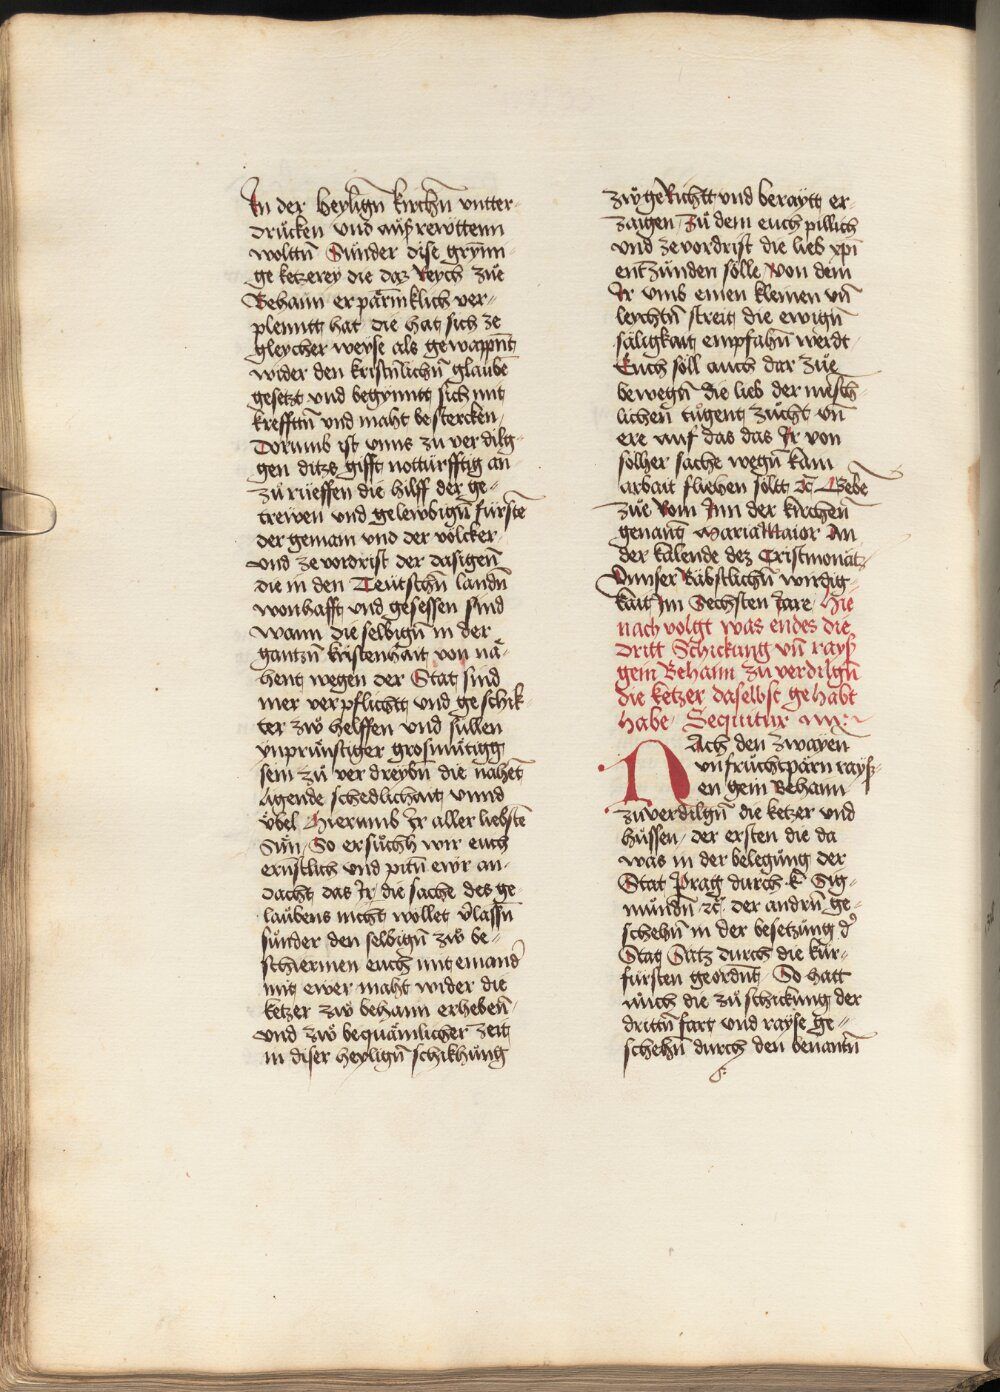 In der heyligñ kirchñ vntter-
drucken vnd auß rewttenn
wolttñ Sunder dise grymm-
ge ketzerey die daz Reych zůe
Behaim erpärmklich ver-
plenntt hat die hat sich ze
gleycher weyse als gewappnt
wider den kristnlichñ glaubē
gesetzt vnd begynntt sich mit
krefftñ vnd maht bestercken
Dorumb ist vnns zu verdilg-
gen ditzs gifft notturfftig an
zů rüeffen die hilff der ge-
trewen vnd gelewbigñ fürstē
der gemain vnd der völcker
vnd zevordrist der dasigenn
die in den Teutschñ landñ
wonhafft vnd gesessen sind
wann die selbigñ in der
gantzñ kristenhait von nä-
hent wegen der Stat sind
mer verpflicht vnd geschik-
ter zwo helffen vnd sullen
ynprünstiger grosmütigg
sein zu verdreybñ die nahet
ligende schedlichait vnnd
vbel Hierumb Ir aller liebstē
Sün So ersůchh wir euch
ernstlich vnd pitñ ewr an-
dacht das Ir die sache des ge-
laubens nicht wollet v̄lassñ
sunder den selbigñ zwo be-
schiermen euch mit emander
mit ewer maht wider die
ketzer zwo behaim erheben
vnd zwo bequämlicher zeit
in diser heyligñ schikhung
zwo geRichtt vnd beraytt er-
zaigen Zů dem euch pillich
vnd zevordrist die lieb xp̄i
entzünden sölle von dem
Ir vmb einen kleinen vñ
leychtñ streit die ewigñ
säligkait empfahñ werdt
Euch söll auch dar zůe
bewegñ die lieb der mensch-
lichen tugent zucht vñ
ere auf das das Ir von
sölher sache wegñ kain
arbait fliehen söltt ꝛc̄ Gebē
zůe Rom Inn der kirchen
genant Maria Maior An
der kalende dez Cristmonatz
Vnnser Bäbstlichñ wirdig-
kait Im Sechsten Jare Hie
nach volgt was endes die
dritt Schickang vñ rayß
gein Behaim zu verdilgñ
die ketzer daselbst gehabt
habe Sequitur
Nach den zwayen
vnfruchtpärn rayß-
en gein Behaim
zuverdilgñ die ketzer vnd
hussen der ersten die da
was in der belegung der
Stat Prag durch k̄ Sig-
mundñ ꝛc̄ der andrñ ge-
schehñ in der besetzung d̾
Stat Satz durch die kur-
fürsten geordnt So hatt
auch die zů schickung der
drittñ fart vnd rayse ge-
schehñ durch den benantñ